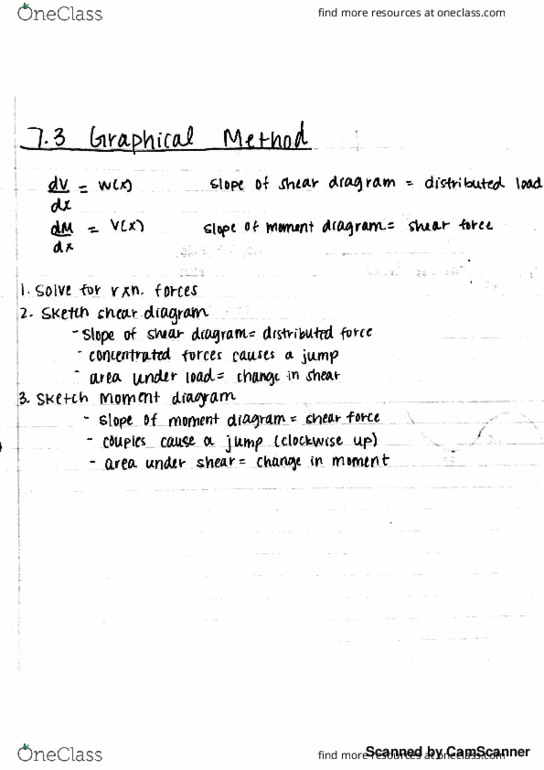 OneClass
find more resources at oneclass.com
7.3 Graphical Method
dV/dx = W(x) slope of shear diagram = distributed load
dM/dx = V(x) slope of moment diagram = shear force
1. Solve for rxn. forces
2. Sketch shear diagram
- Slope of shear diagram = distributed force
- concentrated forces causes a jump
- area under load = change in shear
3. Sketch moment diagram
- slope of moment diagram = shear force
- couples cause a jump (clockwise up)
- area under shear = change in moment
OneClass
find more resources at oneclass.com
Scanned by CamScanner